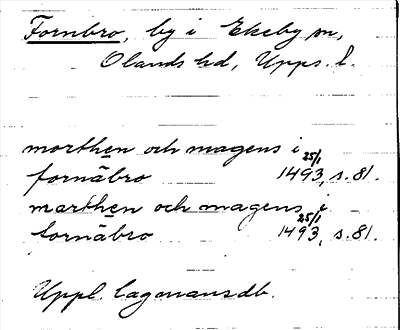 Fornbro, by i Ekeby sn,
Olands hd, Upps. l.
morthen och magens i
fornäbro 25/1 1493, s. 81.
marthen och magens i
tornäbro 25/1 1493, s. 81.
Uppl. lagmansdb.